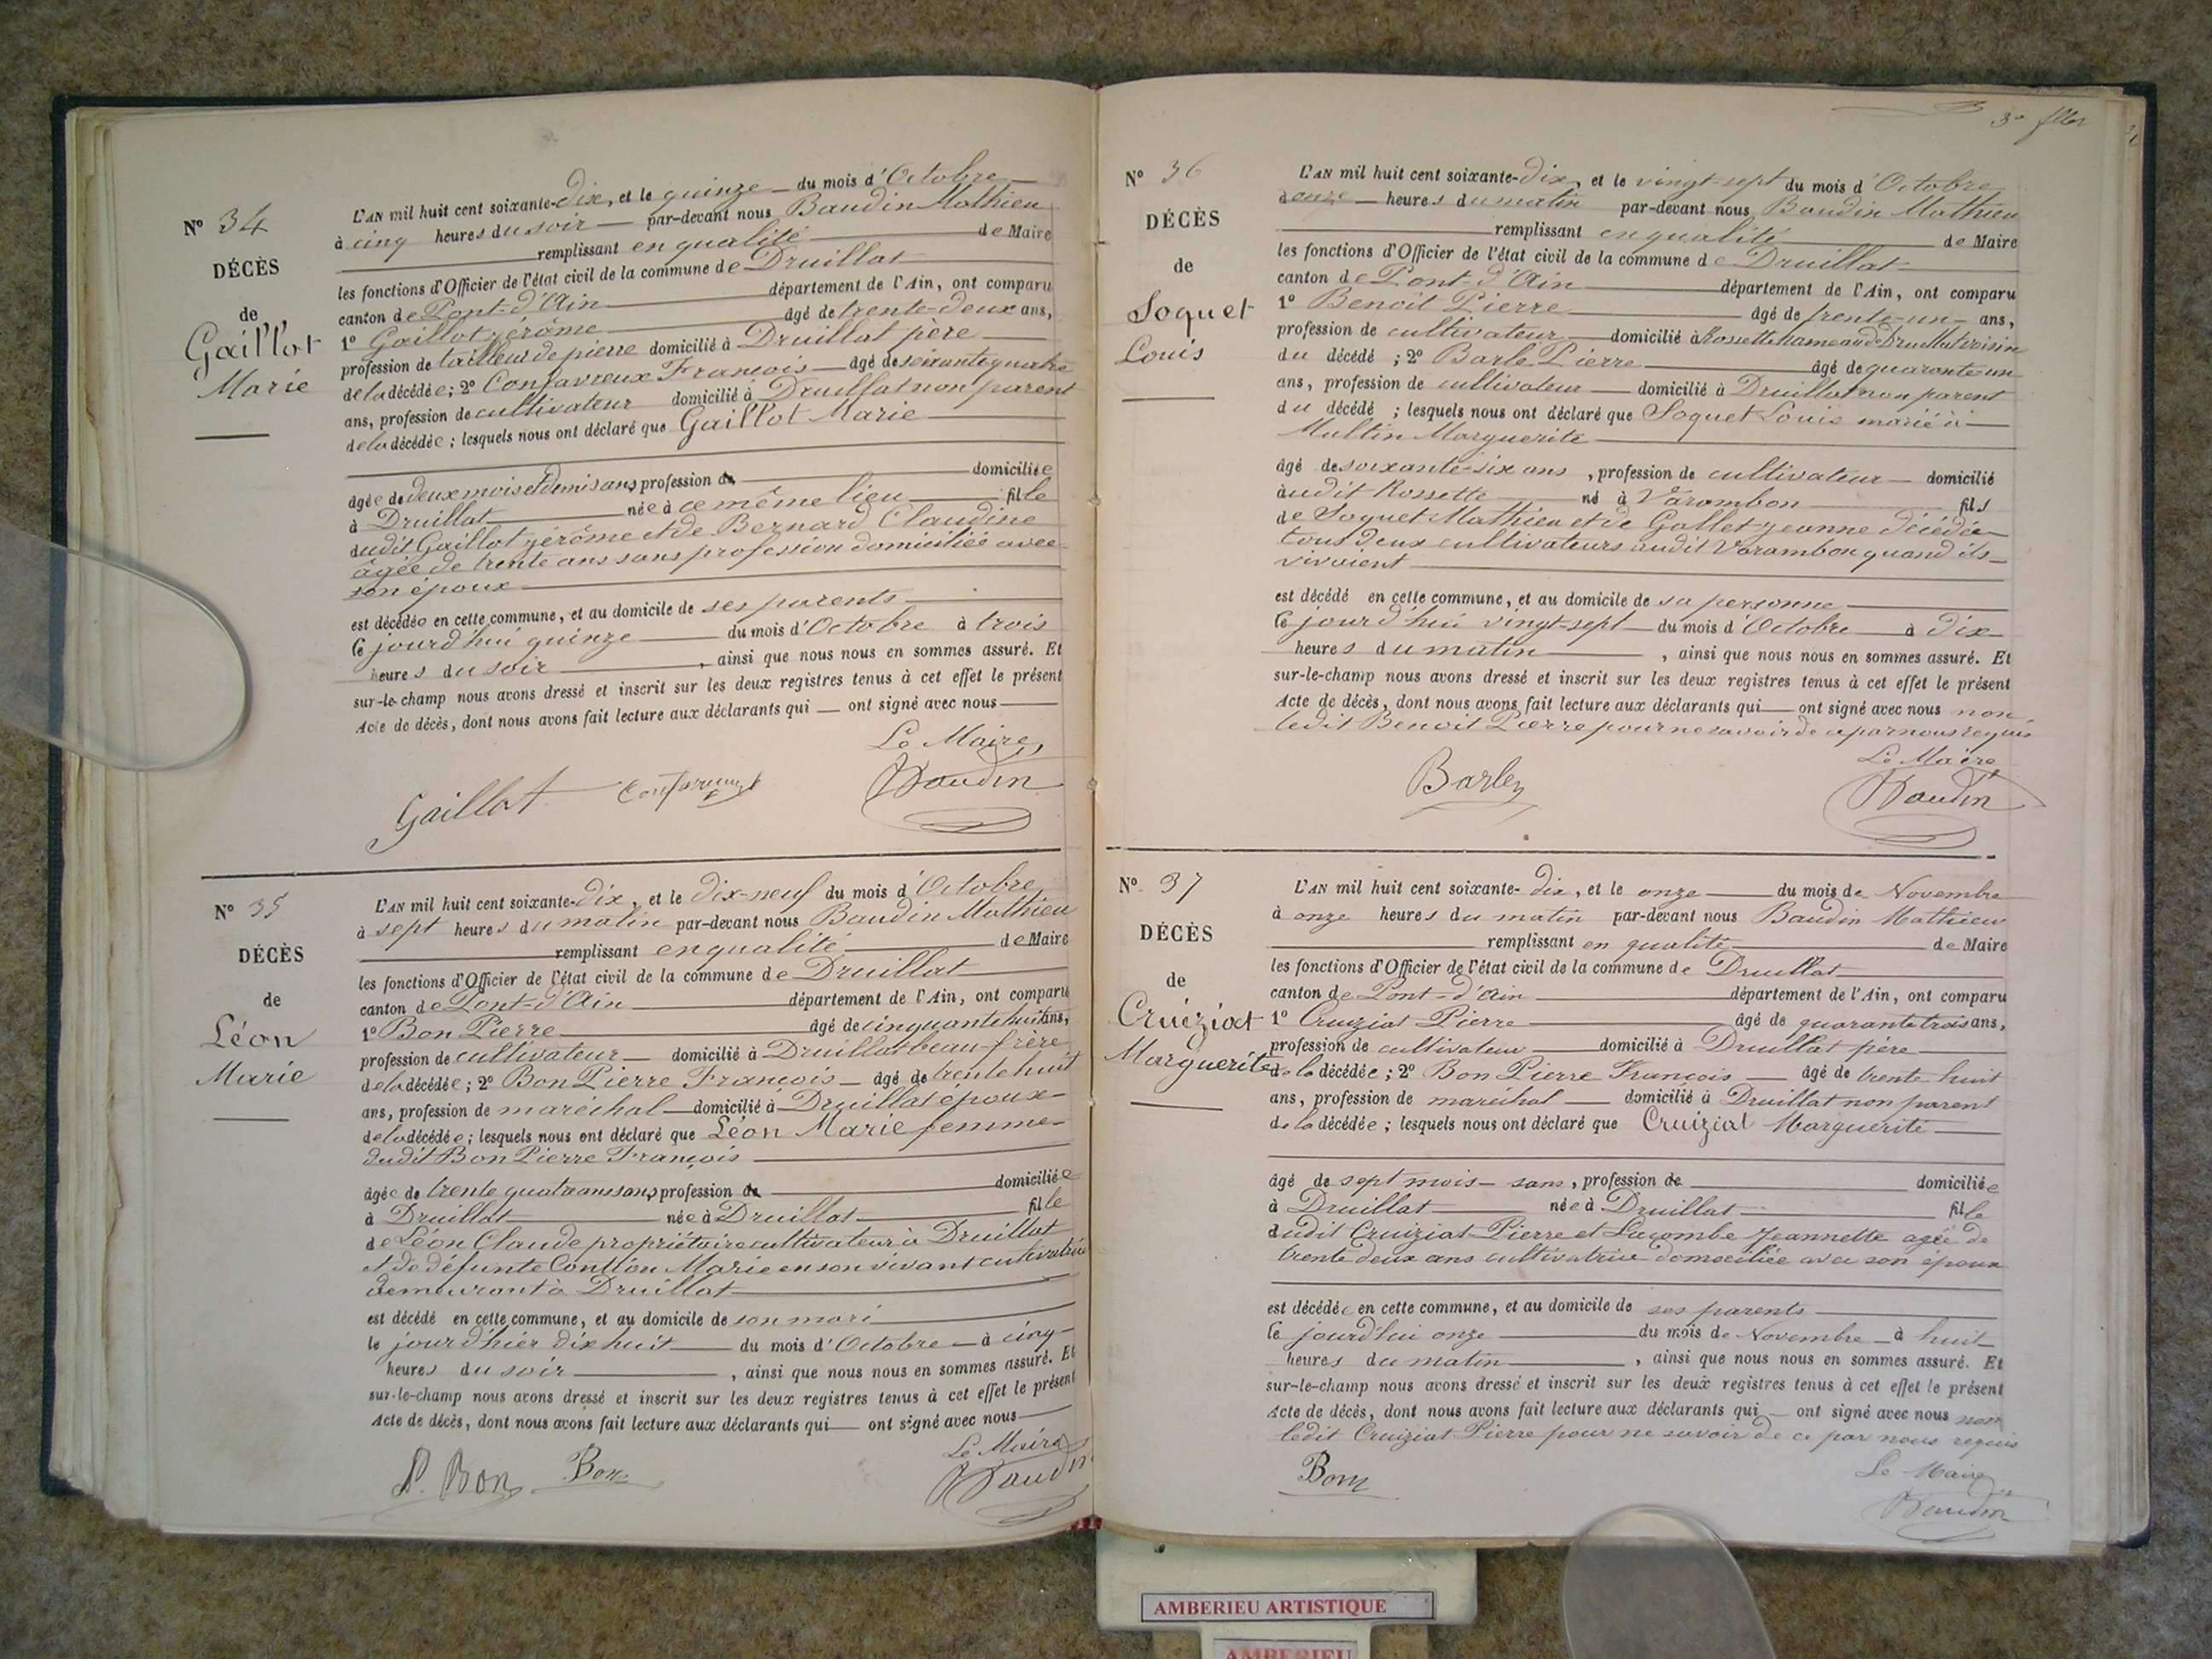 Nº 34
DÉCÈS
de
Gaillot
Marie
L'AN mil huit cent soixante-dix, et le quinze du mois d'Octobre
à cinq heures du soir par-devant nous Baudin Mathieu
remplissant en qualité de Maire
les fonctions d'Officier de l'état civil de la commune de Druillat
canton de Pont-d'Ain département de l'Ain, ont comparu
1º Gaillot Jérôme âgé de trente-deux ans,
profession de tailleur de pierre domicilié à Druillat père
de la décédée; 2º Confavreux François âgé de soixante quatre
ans, profession de cultivateur domicilié à Druillat non parent
de la décédée; lesquels nous ont déclaré que Gaillot Marie
âgée de deux mois et demi sans profession de domiciliée
à Druillat née à ce même lieu fille
dudit Gaillot Jérôme et de Bernard Claudine
âgée de trente ans sans profession domiciliée avec
son époux
est décédée en cette commune, et au domicile de ses parents
le jourd'hui quinze du mois d'Octobre à trois
heures du soir, ainsi que nous nous en sommes assuré. Et
sur-le-champ nous avons dressé et inscrit sur les deux registres tenus à cet effet le présent
Acte de décès, dont nous avons fait lecture aux déclarants qui ont signé avec nous
Le Maire
Gaillot Confavreux Baudin
Nº 35
DÉCÈS
de
Léon
Marie
L'AN mil huit cent soixante-dix, et le dix-neuf du mois d'Octobre
à sept heures du matin par-devant nous Baudin Mathieu
remplissant en qualité de Maire
les fonctions d'Officier de l'état civil de la commune de Druillat
canton de Pont-d'Ain département de l'Ain, ont comparu
1º Bon Pierre âgé de cinquante huit ans,
profession de cultivateur domicilié à Druillat beau-frère
de la décédée; 2º Bon Pierre François âgé de trente huit
ans, profession de maréchal domicilié à Druillat époux
de la décédée; lesquels nous ont déclaré que Léon Marie femme
dudit Bon Pierre François
âgée de trente quatre ans sans profession de domiciliée
à Druillat née à Druillat fille
de Léon Claude propriétaire cultivateur à Druillat
et de défunte Marie en son vivant cultivatrice
demeurant à Druillat
est décédé en cette commune, et au domicile de son mari
le jour d'hier dix huit du mois d'Octobre à cinq
heures du soir, ainsi que nous nous en sommes assuré. Et
sur-le-champ nous avons dressé et inscrit sur les deux registres tenus à cet effet le présent
Acte de décès, dont nous avons fait lecture aux déclarants qui ont signé avec nous
Le Maire
P. Bon Bon Baudin
Nº 36
DÉCÈS
de
Soquet
Louis
L'AN mil huit cent soixante-dix, et le vingt-sept du mois d'Octobre
à onze heures du matin par-devant nous Baudin Mathieu
remplissant en qualité de Maire
les fonctions d'Officier de l'état civil de la commune de Druillat
canton de Pont-d'Ain département de l'Ain, ont comparu
1º Benoit Pierre âgé de trente-un ans,
profession de cultivateur domicilié à Rossette hameau de Druillat voisin
du décédé; 2º Barle Pierre âgé de quarante-un
ans, profession de cultivateur domicilié à Druillat non parent
du décédé; lesquels nous ont déclaré que Soquet Louis marié à
Multin Marguerite
âgé de soixante-six ans, profession de cultivateur domicilié
audit Rossette né à Varambon fils
de Soquet Mathieu et de Gallet Jeanne décédée
tous deux cultivateurs audit Varambon quand ils
vivaient
est décédé en cette commune, et au domicile de sa personne
le jourd'hui vingt-sept du mois d'Octobre à dix
heures du matin, ainsi que nous nous en sommes assuré. Et
sur-le-champ nous avons dressé et inscrit sur les deux registres tenus à cet effet le présent
Acte de décès, dont nous avons fait lecture aux déclarants qui ont signé avec nous non
ledit Benoit Pierre pour ne savoir de ce par nous requis
Le Maire
Barle Baudin
Nº 37
DÉCÈS
de
Cruiziat
Marguerite
L'AN mil huit cent soixante-dix, et le onze du mois de Novembre
à onze heures du matin par-devant nous Baudin Mathieu
remplissant en qualité de Maire
les fonctions d'Officier de l'état civil de la commune de Druillat
canton de Pont-d'Ain département de l'Ain, ont comparu
1º Cruiziat Pierre âgé de quarante trois ans,
profession de cultivateur domicilié à Druillat père
de la décédée; 2º Bon Pierre François âgé de trente huit
ans, profession de maréchal domicilié à Druillat non parent
de la décédée; lesquels nous ont déclaré que Cruiziat Marguerite
âgé de sept mois sans, profession de domiciliée
à Druillat née à Druillat fille
dudit Cruiziat Pierre et Lacombe Jeannette agée de
trente deux ans cultivatrice domiciliée avec son époux
est décédée en cette commune, et au domicile de ses parents
le jourd'hui onze du mois de Novembre à huit
heures du matin, ainsi que nous nous en sommes assuré. Et
sur-le-champ nous avons dressé et inscrit sur les deux registres tenus à cet effet le présent
Acte de décès, dont nous avons fait lecture aux déclarants qui ont signé avec nous non
ledit Cruiziat Pierre pour ne savoir de ce par nous requis
Le Maire
Bon Baudin
AMBERIEU ARTISTIQUE
AMBERIEU